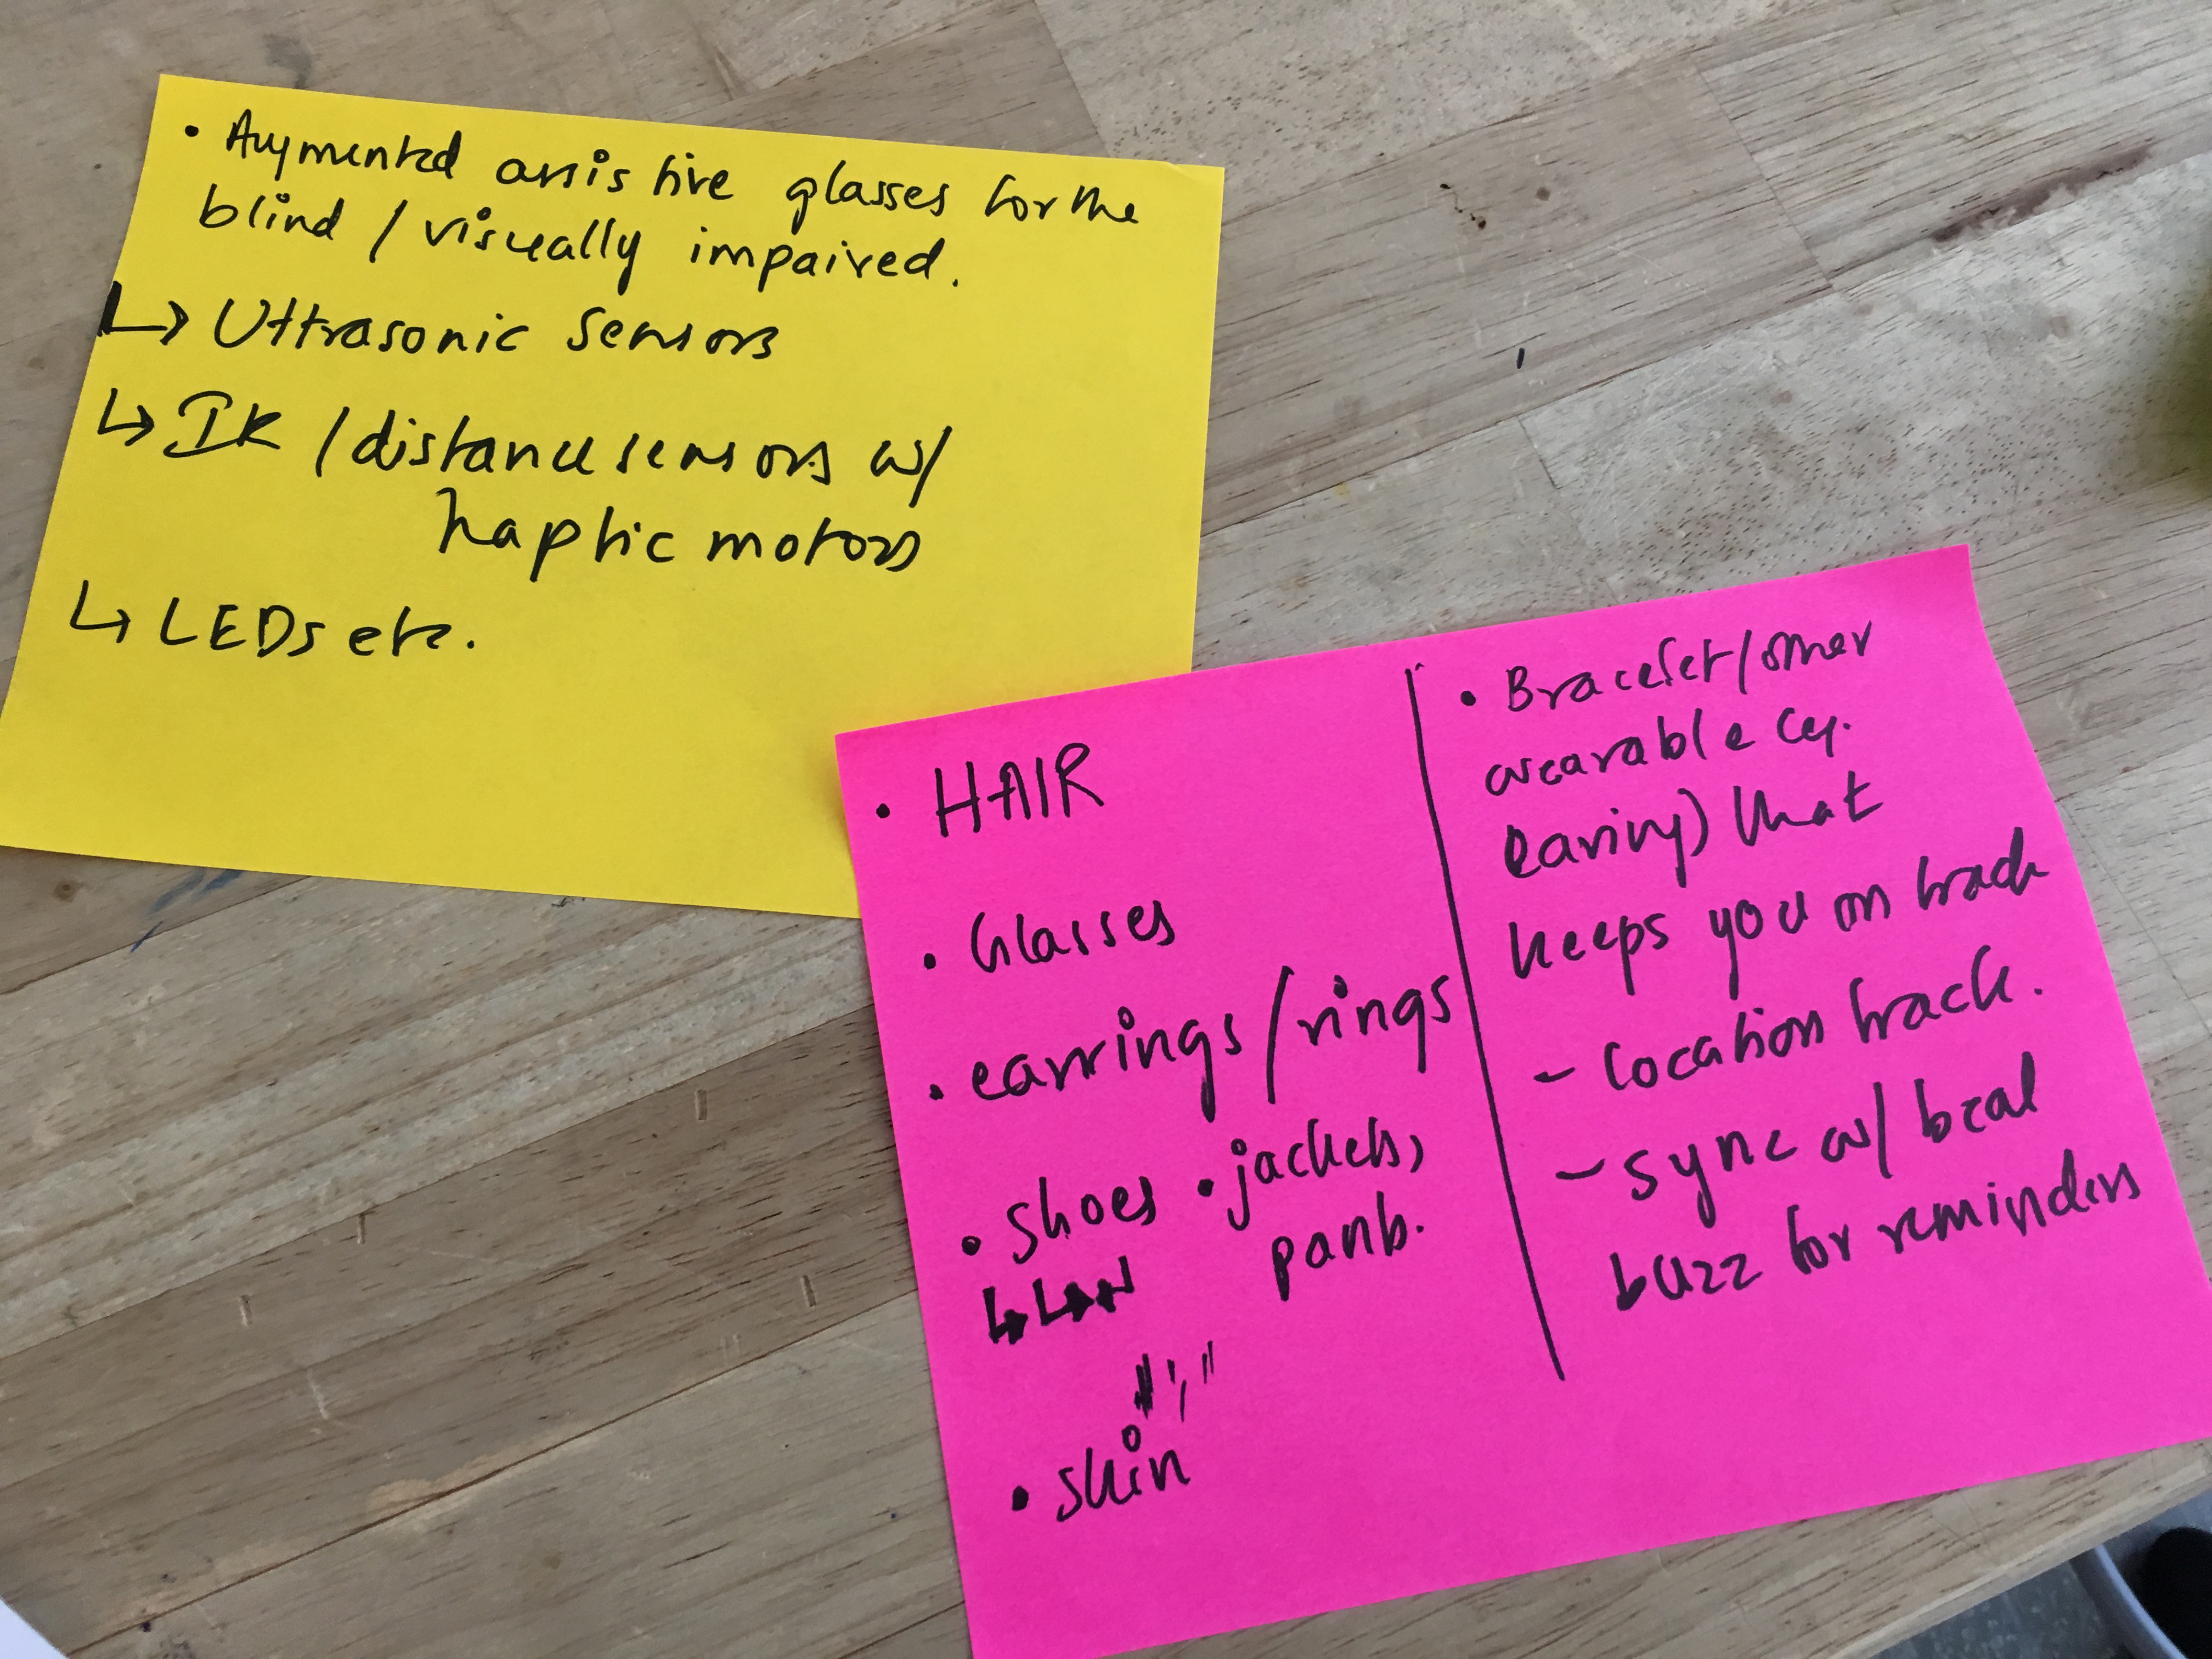 • Augmented assistive glasses for the
blind / visually impaired.
↳ Ultrasonic sensors
↳ IR / distance sensors w/
haptic motors
↳ LEDs etc.
• HAIR
• Glasses
• earrings / rings
• Shoes • jackets,
pants.
• Skin
• Bracelet / other
wearable (eg.
earing) that
keeps you on track
- location track.
- sync w/ bcal
buzz for reminders